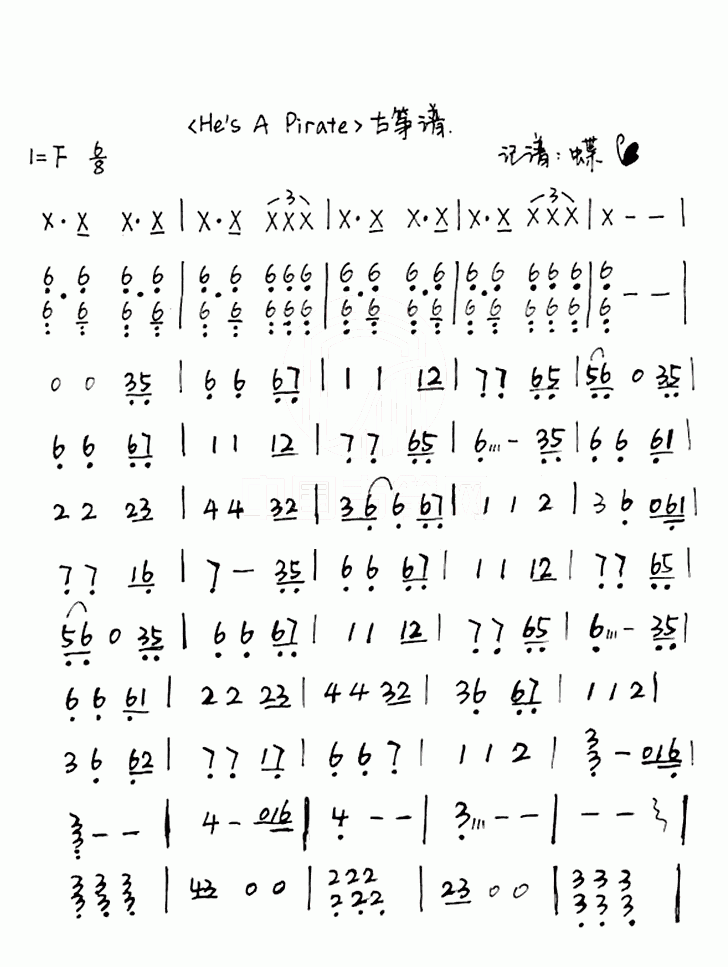 <He's A Pirate>古筝谱.
1=F 6/8 记谱:蝶
x· x x· x | x· x xxx | x· x x· x | x· x xxx | x - - |
6· 6 6· 6 | 6· 6 666 | 6· 6 6· 6 | 6· 6 666 | 6 - - |
6 6 6 6 | 6 6 666 | 6 6 6 6 | 6 6 666 | 6
0 0 35 | 6 6 67 | 1 1 12 | 77 65 | 56 0 35 |
6 6 67 | 1 1 12 | 77 65 | 6/// - 35 | 6 6 61 |
2 2 23 | 4 4 32 | 36 6 67 | 1 1 2 | 3 6 061 |
7 7 16 | 7 - 35 | 6 6 67 | 1 1 12 | 77 65 |
56 0 35 | 6 6 67 | 1 1 12 | 77 65 | 6/// - 35 |
6 6 61 | 2 2 23 | 4 4 32 | 36 67 | 1 1 2 |
3 6 62 | 7 7 17 | 6 6 7 | 1 1 2 | 3 3 - 016 |
3 3 - - | 4 - 016 | 4 - - | 3/// - - | - - |
3 3 3 | 43 0 0 | 222 | 23 0 0 | 3 3 3 |
3 3 3 | 222 | 3 3 3